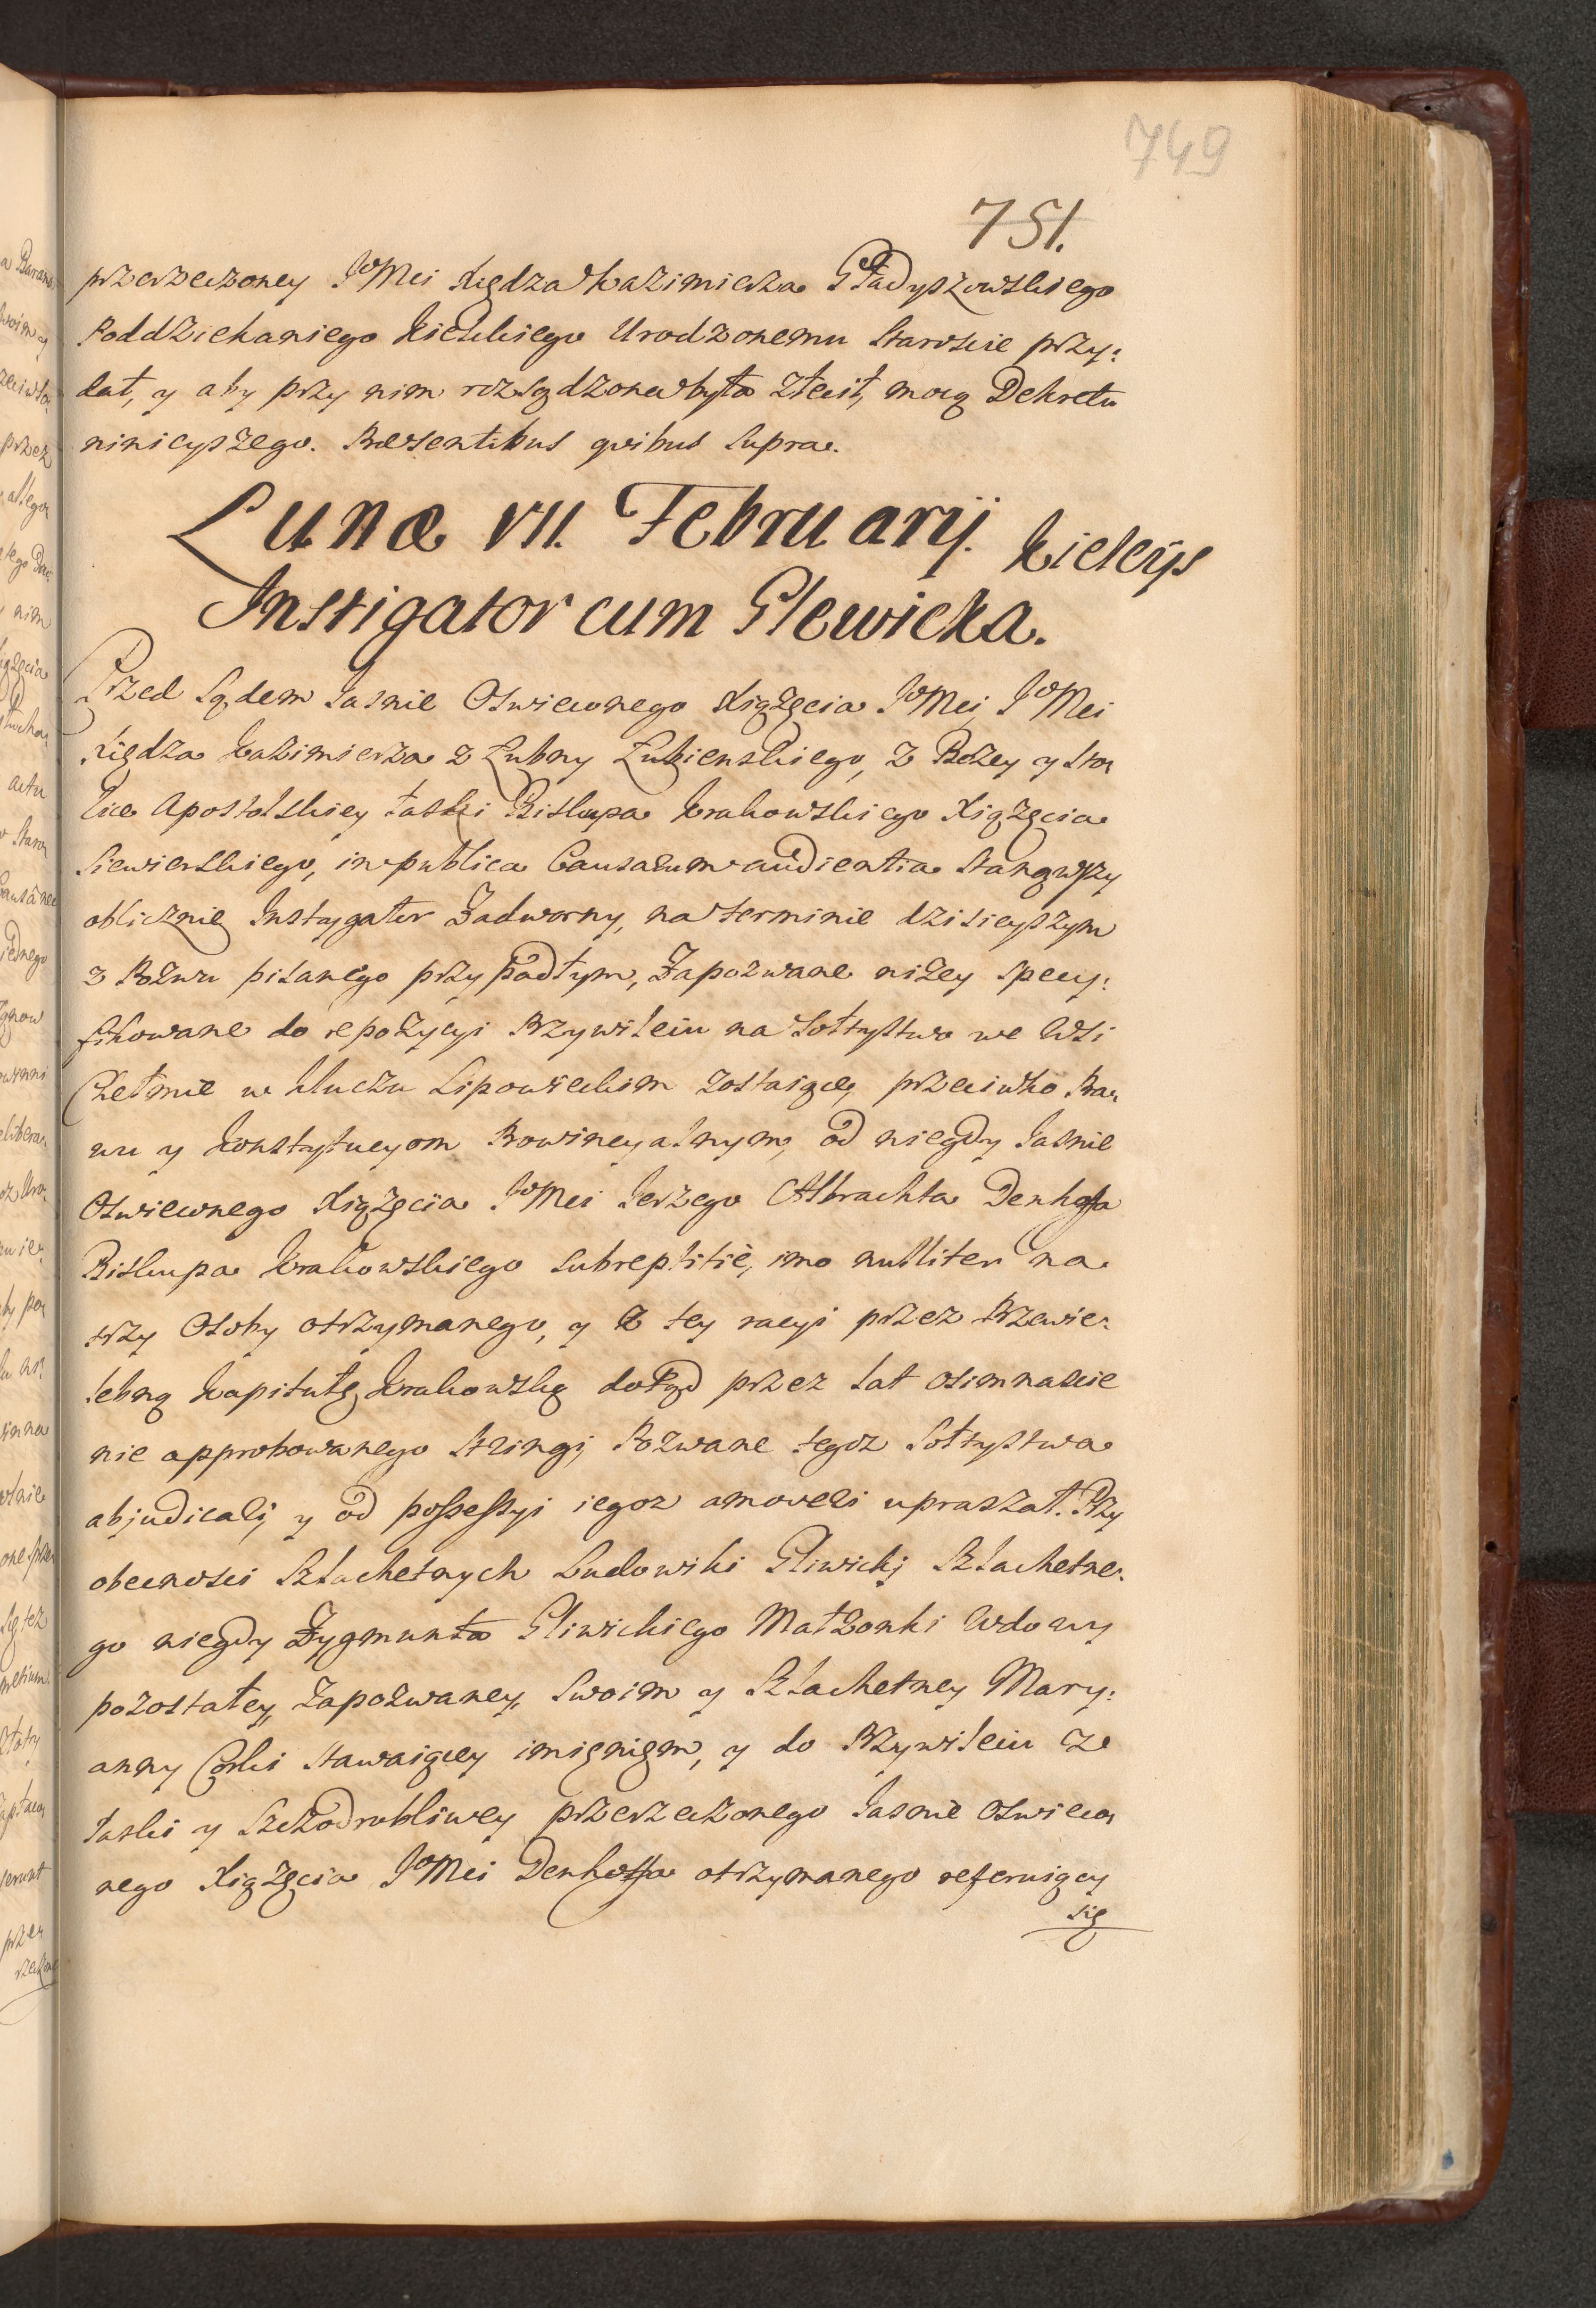 749
751.
przerzeczoney JoMci Xiędza Kazimierza Gładyszowskiego
Poddziekaniego Kieleckiego Urodzonemu Staroscie przy:
dał, y aby przy nim rozsądzona była zlecił, mocą Dekretu
ninieyszego. Præsentibus qvibus supra.
Lunæ VII. Februarij. Kielcijs
Instigator cum Glewicka.
Przed Sądem Jasnie Oswieconego Xiążęcia JoMci, JoMci
Xiędza Kazimierza z Łubny Łubienskiego, z Bożey y Sto,
lice Apostolskiey łaski Biskupa Krakowskiego Xiążęcia
Siewierskiego, in publica Causarum audientia stanąwszy
oblicznie Instygator Zadworny, na terminie dzisieyszym
z Pozwu pisanego przypadłym, Zapozwane niżey specy:
fikowane do repozycyi Przywileiu na Sołtystwo we Wsi
Chełmie w kluczu Lipowieckim zostaiące, przeciwko Pra,
wu y Konstytucyom Prowincyalnym, od niegdy Jasnie
Oswieconego Xiążęcia JoMci Jerzego Albrachta Denhoffa
Biskupa Krakowskiego subreptitiè, imo nulliter na
trzy Osoby otrzymanego, y z tey racyi przez Przewie:
lebną Kapitułę Krakowską dotąd przez lat osimnascie
nie approbowanego stringi, Pozwane tegoz Sołtystwa
abjudicali, y od possessyi iegoz amoveri upraszał. Przy
obecnosci Szlachetnych Ludowiki Gliwicki, Szlachetne:
go niegdy Zygmunta Gliwickiego Małzonki Wdowy
pozostałey, Zapozwaney, swoim y Szlachetney Mary:
anny Corki stawaiącey imięniem, y do Przywileiu ze
łaski y Szczodrobliwey przerzeczonego Jasnie Oswieco,
nego Xiążęcia JoMci Denhoffa otrzymanego referuiący
się